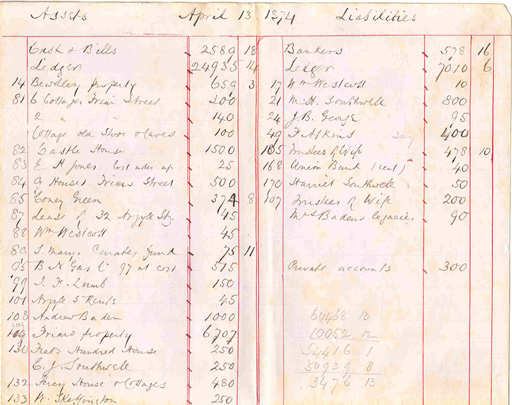 Assets April 13 1874 Liabilities
Cash & Bills 2589 18
Ledger 24935 14
14 Bewdley property 659 3
81 6 Cottages Friar Street 200
2 " " 140
Cottage old Shoe & Leaves 100
82 Castle House 1500
83 E H Jones 25
84 9 Houses Friars Street 500
85 Coney Green 374 8
87 Lease of 32 Argyle St 45
88 Wm Westcott 45
St Marys Curates fund 75 11
B N Gas Co 97 at cost 515
99 J. H. Lumb 150
101 Argyle St Rents 45
108 Andrew Baden 1000
Friars property 6707
Hundred House 250
C. J. Southwell 250
132 House & Cottages 480
133 W. Skeffington 250
Bankers 578 16
Ledger 7010 6
17 Wm Westcott 10
21 M. H. Southwell 800
24 J. B. George 95
49 F. Atkins 400
105 Trustees of Wife 478 10
168 Union Bank (rent) 40
170 Harriet Southwell 50
107 Trustees of Wife 200
Mrs Badens legacies 90
Private accounts 300
64468 13
10052 12
54416 1
50939 8
3476 13